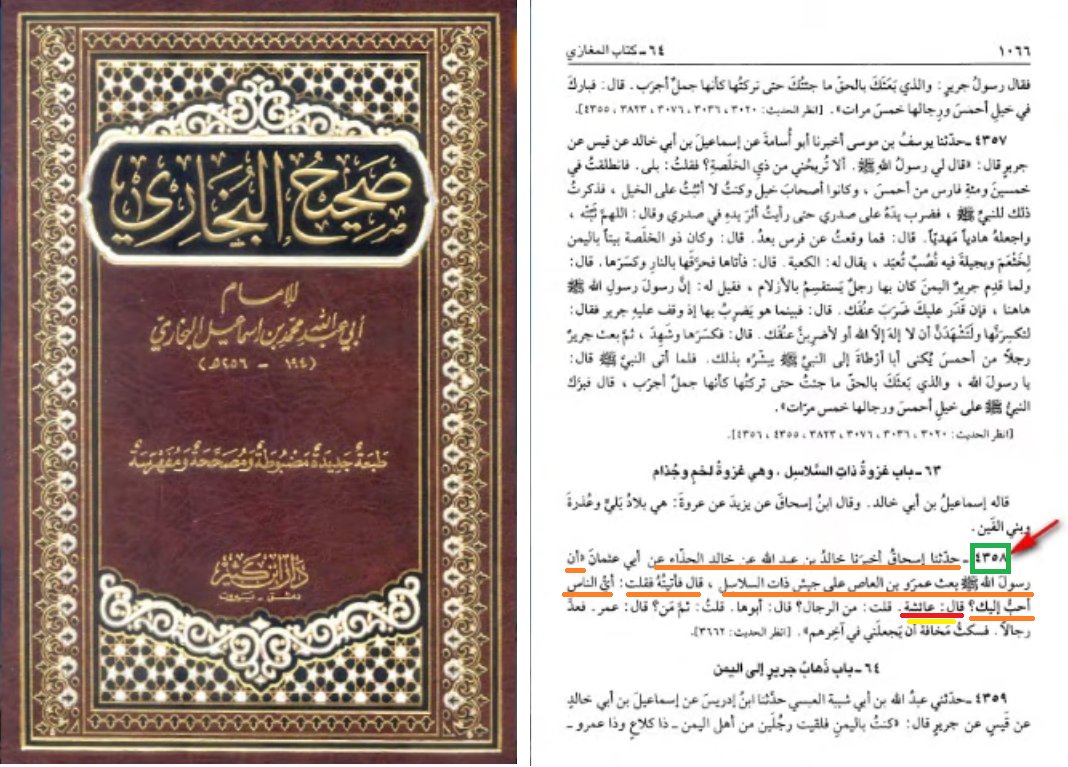 صَحِيحُ البُخَارِي
للإمام
أبي عبد الله محمد بن إسماعيل البخاري
(١٩٤ - ٢٥٦هـ)
طبعة جديدة مضبوطة ومصححة ومفهرسة
دار ابن كثير
دمشق - بيروت
٦٤ - كتاب المغازي ١٠٦٦
فقال رسولُ جرير: والذي بَعَثَكَ بالحقّ ما جئتُكَ حتى تركتُها كأنها جملٌ أجرَب. قال: فبارك
في خيلِ أحمسَ ورجالها خمسَ مرات». [انظر الحديث: ٣٠٢٠، ٣٠٣٦، ٣٠٧٦، ٣٨٢٣، ٤٣٥٥].
٤٣٥٧ - حدّثنا يوسفُ بن موسى أخبرنا أبو أُسامةَ عن إسماعيلَ بن أبي خالد عن قيس عن
جرير قال: «قال لي رسولُ اللهِ ﷺ. ألا تُريحُني من ذي الخلَصةِ؟ فقلتُ: بلى. فانطلقتُ في
خمسينَ ومئةِ فارس من أحمسَ، وكانوا أصحابَ خيلٍ وكنتُ لا أثبُتُ على الخيل، فذكرتُ
ذلك للنبيِّ ﷺ، فضرب يدَهُ على صدري حتى رأيتُ أثرَ يدِهِ في صدري وقال: اللهمَّ ثبِّتْه،
واجعلهُ هادياً مَهديّاً. قال: فما وقعتُ عن فرسٍ بعدُ. قال: وكان ذو الخلَصة بيتاً باليمن
لِخَثْعَمَ وبجيلةَ فيه نُصُبٌ تُعبَد، يقال له: الكعبة. قال: فأتاها فحرَّقَها بالنارِ وكسَرَها. قال:
ولما قدِم جريرٌ اليمنَ كان بها رجلٌ يَستقسِمُ بالأزلام، فقيل له: إنَّ رسولَ رسولِ اللهِ ﷺ
هاهنا، فإن قَدَر عليكَ ضَرَبَ عنُقَك. قال: فبينما هو يَضرِبُ بها إذ وقف عليهِ جرير فقال:
لتكسِرنَّها ولَتَشهَدَنَّ أن لا إلهَ إلاّ الله أو لأضربنَّ عنُقَك. قال: فكسَرَها وشَهِدَ، ثمَّ بعث جريرٌ
رجلاً من أحمسَ يُكنى أبا أرْطاةَ إلى النبيِّ ﷺ يبشِّرُه بذلك. فلما أتى النبيَّ ﷺ قال:
يا رسولَ الله، والذي بَعَثَكَ بالحقّ ما جئتُ حتى تركتُها كأنها جملٌ أجرَب، قال فبرَّك
النبيُّ ﷺ على خيلِ أحمسَ ورجالها خمس مرّات».
[انظر الحديث: ٣٠٢٠، ٣٠٣٦، ٣٠٧٦، ٣٨٢٣، ٤٣٥٥، ٤٣٥٦].
٦٣ - باب غزوةُ ذاتِ السَّلاسِل، وهي غزوةُ لخمٍ وجُذام
قاله إسماعيلُ بن أبي خالد. وقال ابنُ إسحاقَ عن يزيدَ عن عروةَ: هي بلادُ بَليٍّ وعُذرةَ
وبني القَين.
٤٣٥٨ - حدّثنا إسحاقُ أخبرَنا خالدُ بن عبد الله عن خالد الحذّاء عن أبي عثمانَ «أن
رسولَ اللهِ ﷺ بعث عمرَو بن العاص على جيش ذات السلاسل، قال فأتيتُهُ فقلت: أيُّ الناس
أحبُّ إليك؟ قال: عائشة. قلت: من الرجال؟ قال: أبوها. قلتُ: ثمَّ مَن؟ قال: عمر. فعدَّ
رجالاً. فسكتُّ مَخافةَ أن يَجعلَني في آخرهم». [انظر الحديث: ٣٦٦٢].
٦٤ - باب ذَهابُ جرير إلى اليمن
٤٣٥٩ - حدّثني عبدُ الله بن أبي شيبةَ العبسي حدّثنا ابنُ إدريسَ عن إسماعيلَ بن أبي خالدٍ
عن قَيسٍ عن جريرٍ قال: «كنتُ باليمنِ فلقيتُ رجُلَين من أهلِ اليمن - ذا كلاعٍ وذا عمرو -